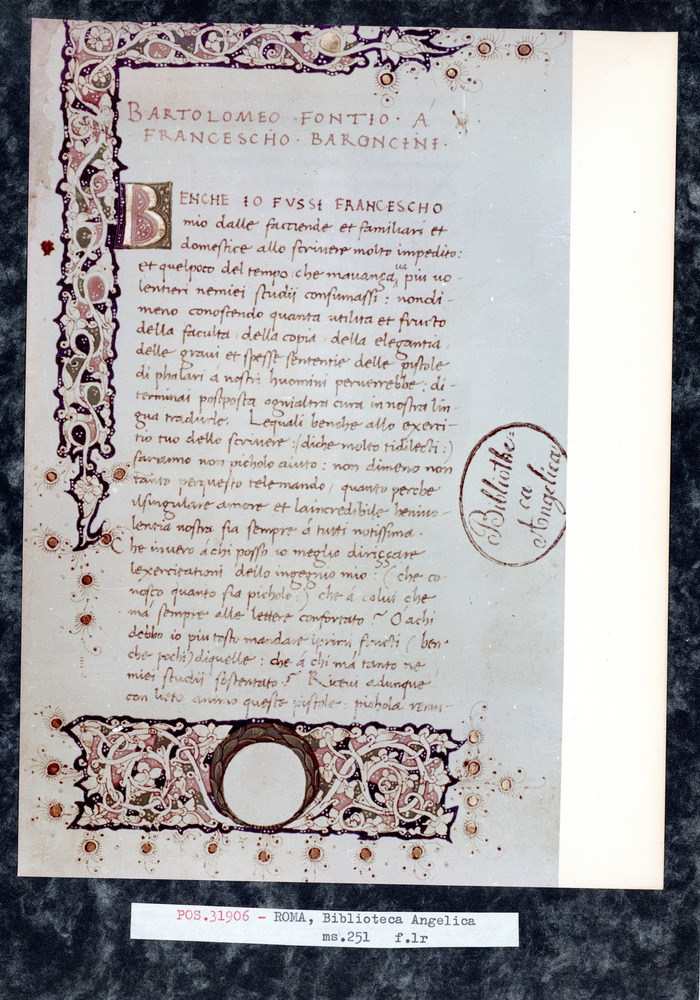 BARTOLOMEO · FONTIO · Á
FRANCESCHO · BARONCINI ·
BENCHE IO FVSSI FRANCESCHO
mio dalle faccende et familiari et
domestice allo scrivere molto impedito:
et quel poco del tempo che mavanzava più vo-
lentieri nemiei studii consumassi: nondi-
meno conoscendo quanta utilita et fructo
della faculta, della copia, della elegantia,
delle gravi et spesse sententie delle pistole
di phalari á nostri huomini perverrebbe: di-
terminai posposta ognialtra cura in nostra lin-
gua tradurle. Lequali benche allo exerci-
tio tuo dello scrivere: (diche molto tidilecti:)
saranno non picholo aiuto: non dimeno non
tanto perquesto telemando, quanto perche
ilsingulare amore et laincredibile benivo-
lentia nostra sia sempre á tutti notissima.
Che invero á chi posso io meglio dirizzare
lexercitationi dello ingegnio mio: (che co
nosco quanto sia picholo:) che á colui che
má sempre alle lettere confortato? O achi
debbo io piu tosto mandare iprimi fructi (ben
che pochi) diquelle: che á chi má tanto ne
miei studii sostentato? Ricevi adunque
con lieto animo queste pistole: pichola remu-
Bibliothe=
ca
Angelica
POS.31906 - ROMA, Biblioteca Angelica
ms.251 f.1r